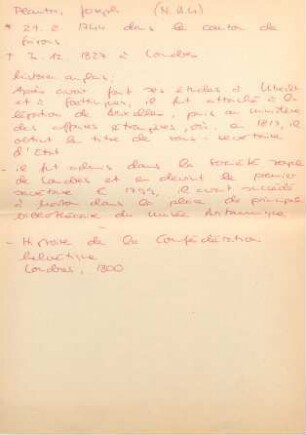 Planta, Joseph (N.D.B.)
* 21. 2 1744 dans le canton de
Grisons
† 3. 12. 1827 à Londres
historien anglais;
Après avoir fait ses études à Utrecht
et à Goettingues, il fut attaché à la
légation de Bruxelles, puis au ministère
des affaires étrangères, où, en 1813, il
obtint le titre de sous-secrétaire
d'Etat
- il fut admis dans la société royale
de Londres et en devint le premier
secrétaire. E 1799, il avait succédé
à Morton dans la place de principal
bibliothécaire du Musée Britannique
- Histoire de la Confédération
helvétique
Londres, 1800